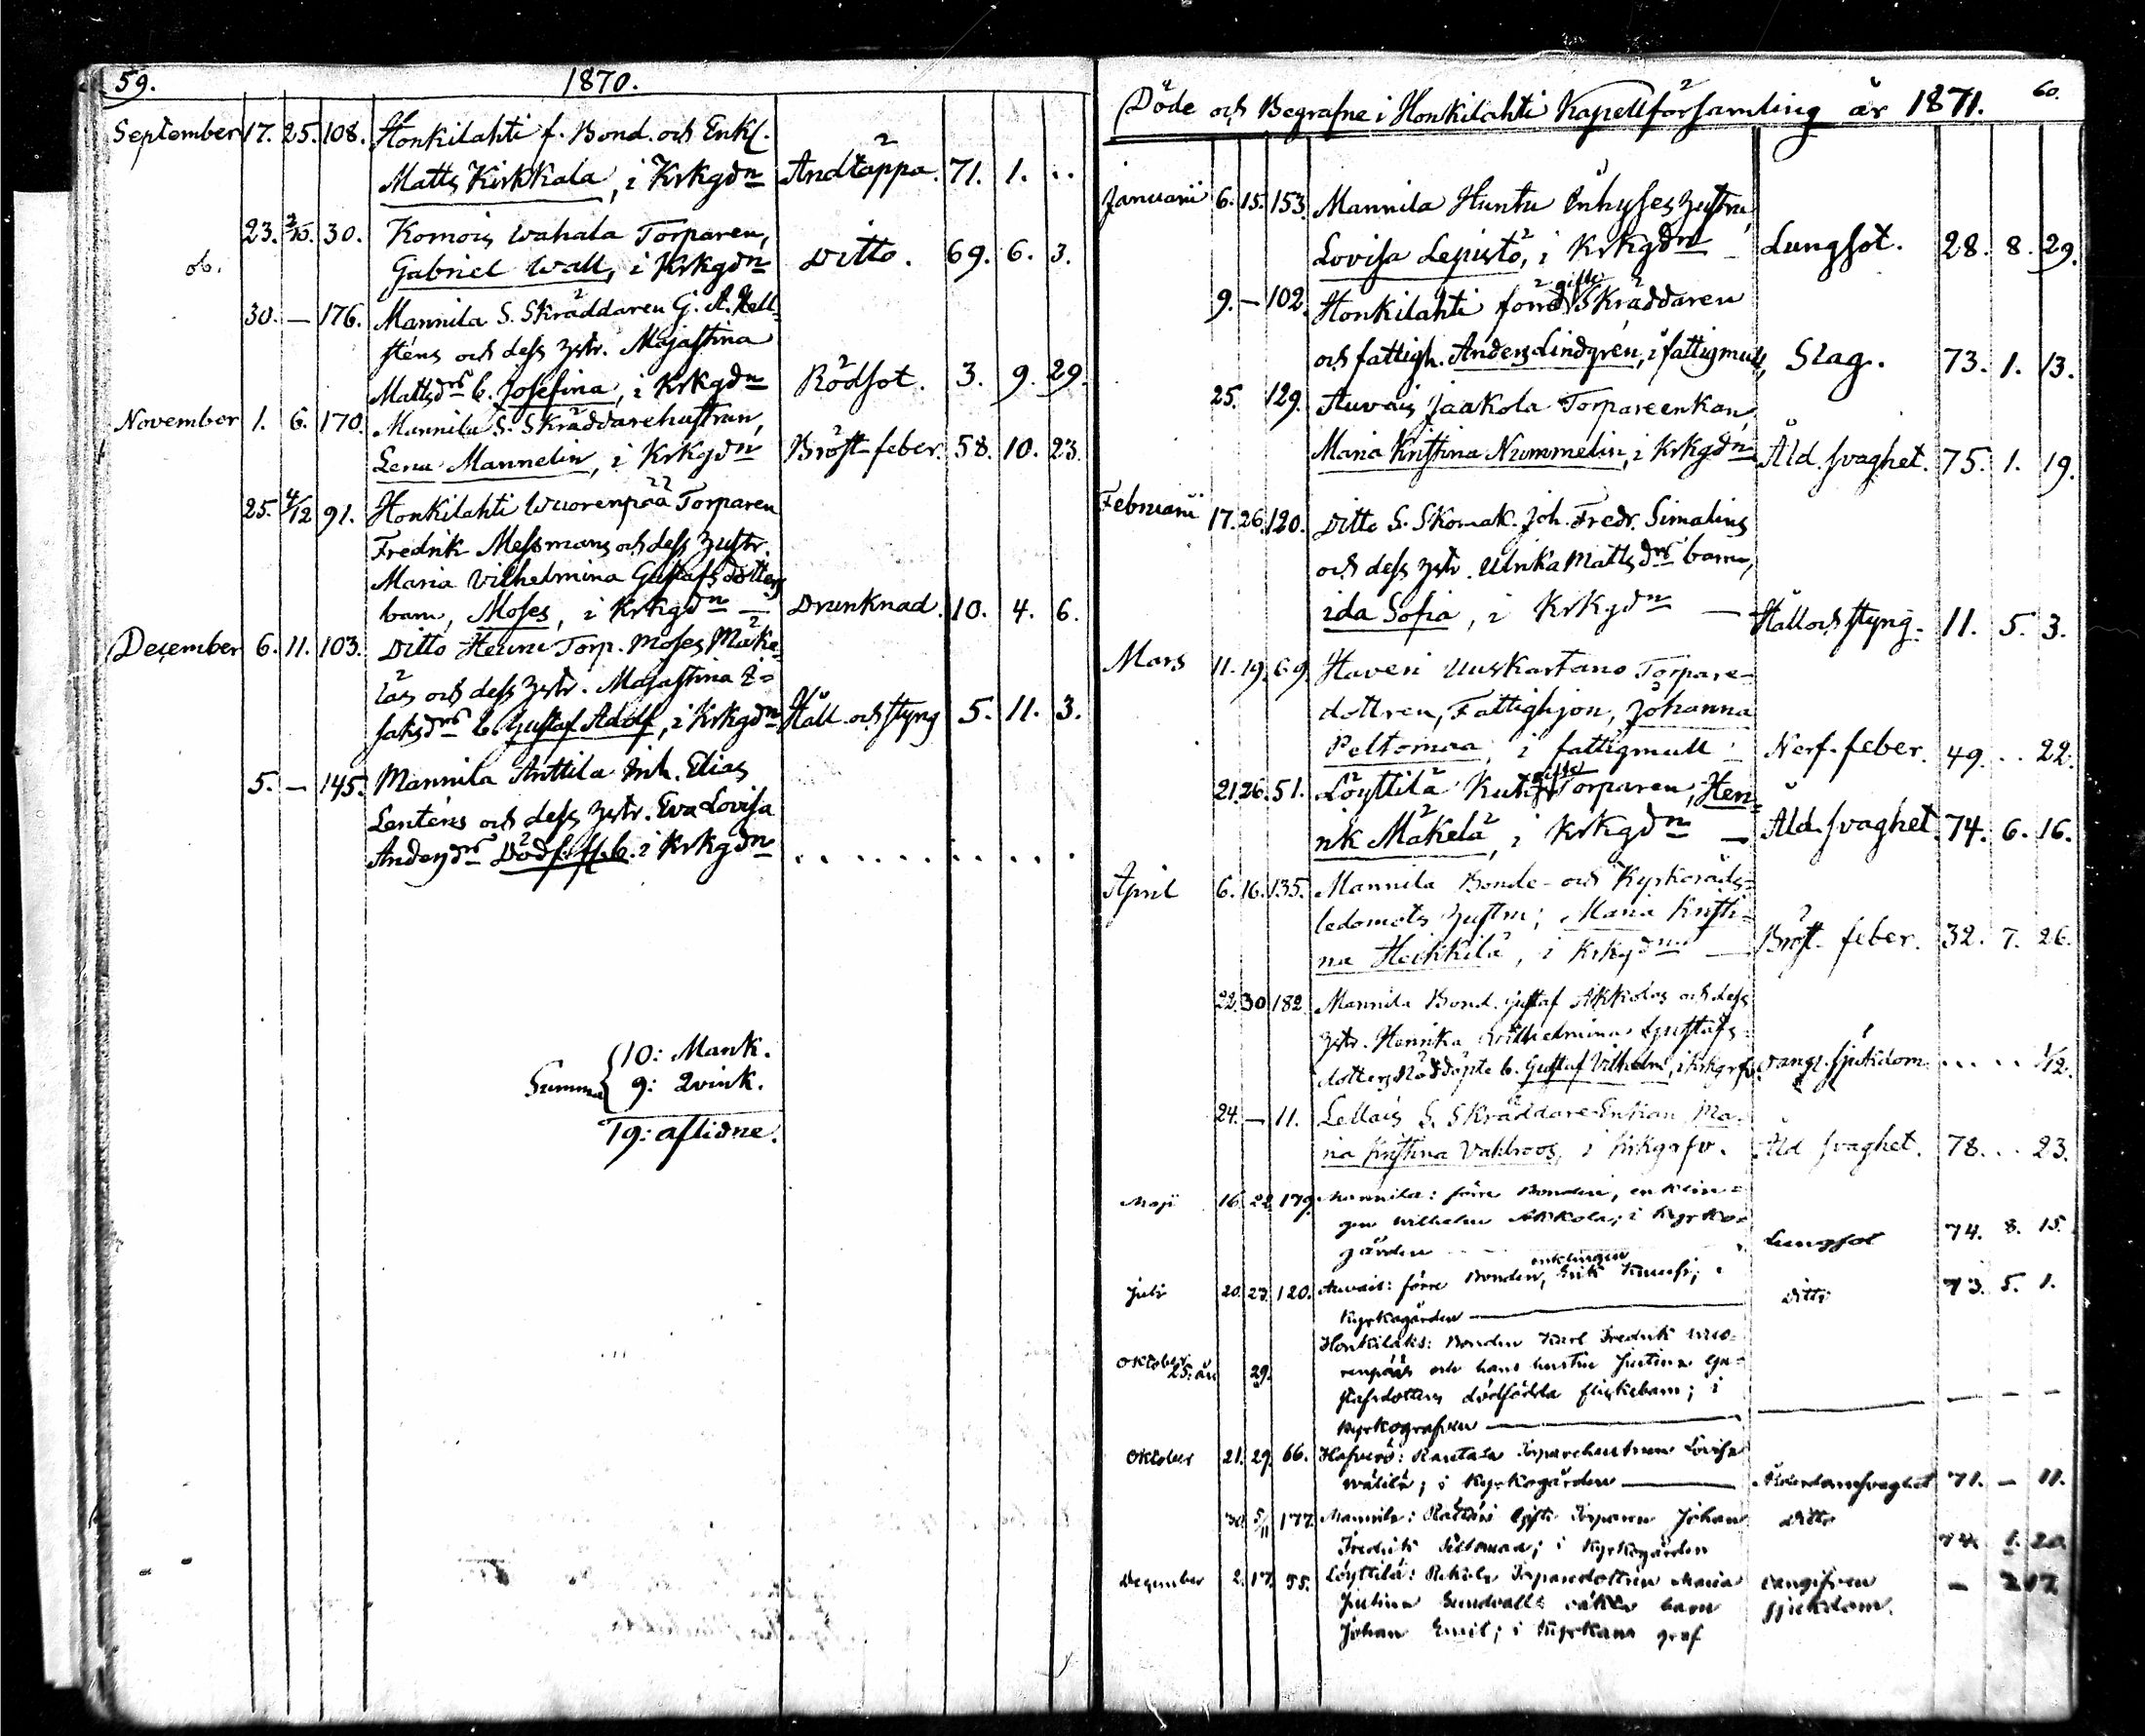 59.
1870.
September 17. 25. 108. Honkilahti f. Bond. och Enkl.
Matts Kirkkala, i Krkgdn Andtäppa. 71. 1. ..
do. 23. 2/10. 30. Komois Wahala Torparen,
Gabriel Wall, i Krkgdn Ditto. 69. 6. 3.
30. — 176. Mannila S. Skräddaren G. A. Hell-
sténs och dess hstr. Majastina
Mattsdrs b. Josefina, i Krkgdn Rödsot. 3. 9. 29.
November 1. 6. 170. Mannila S. Skräddarehustrun,
Lena Mannelin, i Krkgdn Bröst-feber. 58. 10. 23.
25. 4/12 91. Honkilahti Wuorenpää Torparen
Fredrik Messmans och dess hustr.
Maria Vilhelmina Gustafsdotters
barn, Moses, i Krkgdn — Drunknad. 10. 4. 6.
December 6. 11. 103. Ditto Heinu Torp. Moses Mäke-
läs och dess hstr. Majastina I-
saksdrs b. Gustaf Adolf, i Krkgdn Håll och styng 5. 11. 3.
5. — 145. Mannila Anttila Inh. Elias
Lenténs och dess hstr. Eva Lovisa
Andersdrs Dödf. b. i Krkgdn . . . . . . . . .
Summa 10: Mank.
9: Qvink.
19: aflidne.
60.
Döde och Begrafne i Honkilahti Kapellförsamling år 1871.
Januarii 6. 15. 153. Mannila Huntu Inhyses hustru,
Lovisa Lepistö, i Krkgdn — Lungsot. 28. 8. 29.
9. — 102. Honkilahti förrd gifte Skräddaren
och fattigh. Anders Lindgrén, i fattigmull, Slag. 73. 1. 13.
25. 129. Auvais Jaakola Torpareenkan,
Maria Kristina Nummelin, i Krkgdn Åld. svaghet. 75. 1. 19.
Februarii 17. 26. 120. Ditto S. Skomak. Joh. Fredr. Simalins
och dess hstr. Ulrika Mattsdrs barn,
ida Sofia, i Krkgdn — Håll och styng. 11. 5. 3.
Mars 11. 19. 69. Haveri Uuskartano Torpare-
dottren, Fattighjon, Johanna
Peltomaa, i fattigmull Nerf. feber. 49. .. 22.
21. 26. 51. Löyttilä gifte Torparen, Hen-
rik Mäkelä, i Krkgdn — Åld. svaghet. 74. 6. 16.
April 6. 16. 135. Mannila Bonde- och Kyrkoråds-
ledamots hustru; Maria Kristi-
na Heikkilä, i Krkgdn — Bröst-feber. 32. 7. 26.
22. 30. 182. Mannila Bond. Gustaf Akkolas och dess
hstr. Henrika Wilhelmina Gustafs-
dotters Nöddöpte b. Gustaf Vilhelm, i Krkgrfv. Oang. sjukdom. .... 1/12.
24. — 11. Lellais S. Skräddare-Enkan Ma-
ria Kristina Vahlroos, i Krkgrfv. Åld svaghet. 78. .. 23.
Maji 16. 22. 179. Mannila: förre Bonden, enklin-
gen Wilhelm Akkola; i Kyrko-
gården Lungsot 74. 8. 15.
Juli 20. 23. 120. Auvais: förre Bonden, enklingen Erik ; i
Kyrkogården — Ditto 73. 5. 1.
Oktober 25: än 29. Honkilahs: Bonden Karl Fredrik Wuo-
renpääs och hans hustru Justina Gu-
stafsdotters dödfödda flickebarn; i
Kyrkografven — — — —
Oktober 21. 29. 66. Hafverö: Rantala Torparehustrun Lovisa
Wälilä; i Kyrkogården — Ålderdomsvaghet 71. — 11.
30. 5/11 177. Mannila: gifte Torparen Johan
Fredrik Peltomaa; i Kyrkogården Ditto 74. 1. 20.
December 2. 17. 55. Löyttilä: Torparedottren Maria
Justina Sundvalls oäkta barn
Johan Emil; i Kyrkans graf Oangifven
sjukdom. — 2 17